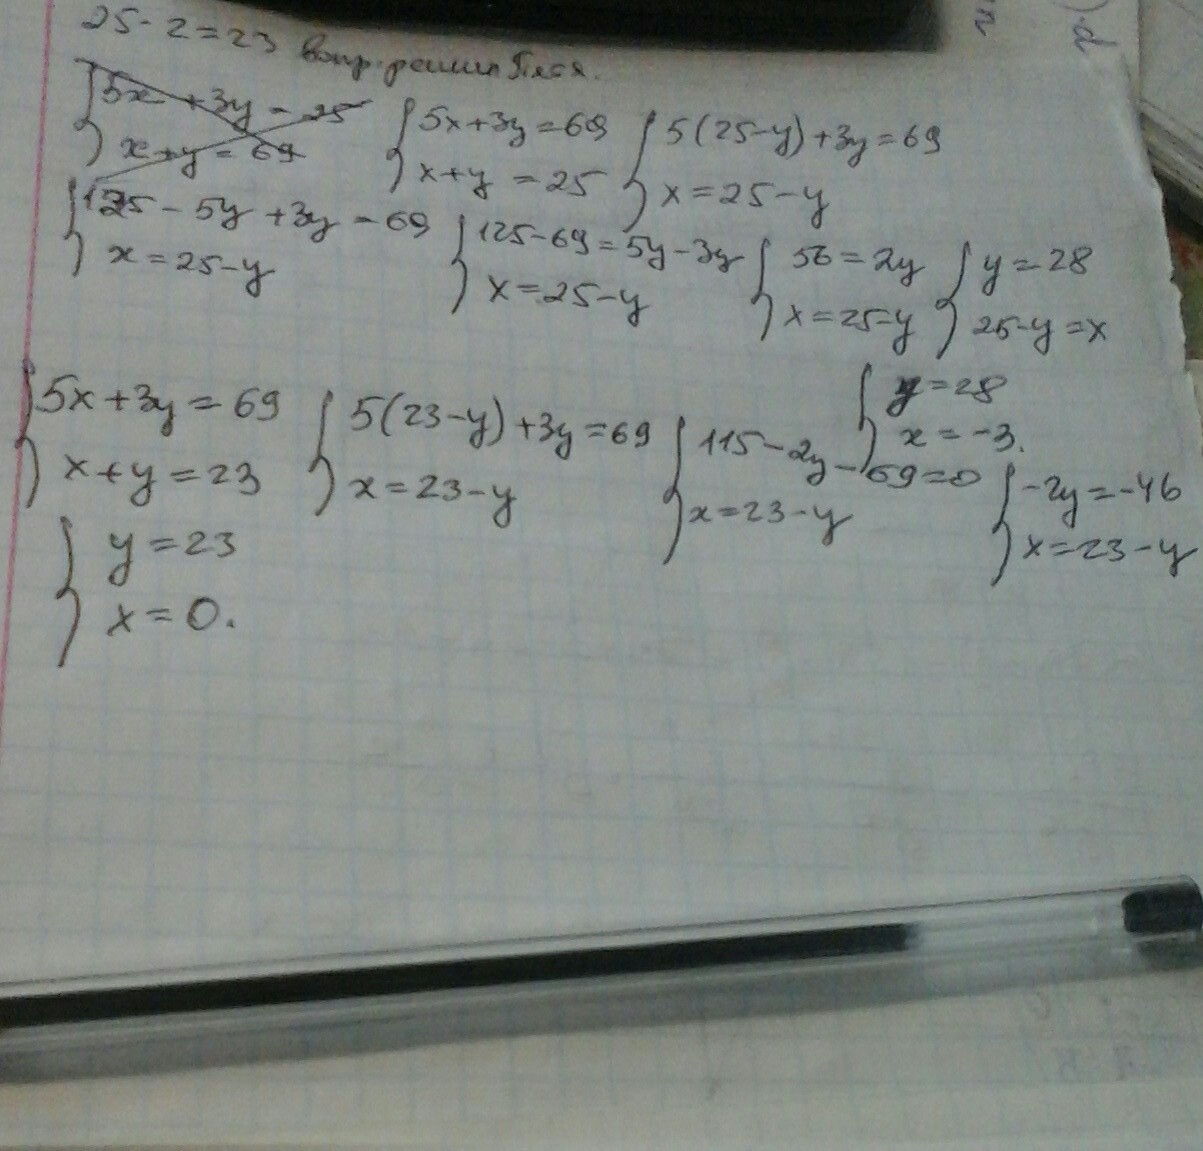 25-2=23 вопр. решил Петя.
{5x+3y=25
x+y=69
{5x+3y=69
x+y=25
{5(25-y)+3y=69
x=25-y
{125-5y+3y=69
x=25-y
{125-69=5y-3y
x=25-y
{56=2y
x=25-y
{y=28
25-y=x
{y=28
x=-3.
{5x+3y=69
x+y=23
{5(23-y)+3y=69
x=23-y
{115-2y-69=0
x=23-y
{-2y=-46
x=23-y
{y=23
x=0.